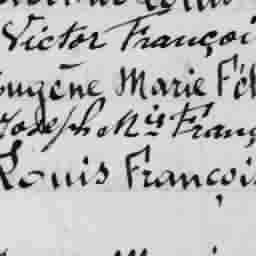 Victor Françoi
Eugène Marie Fé
Joseph Mis Franç
Louis François